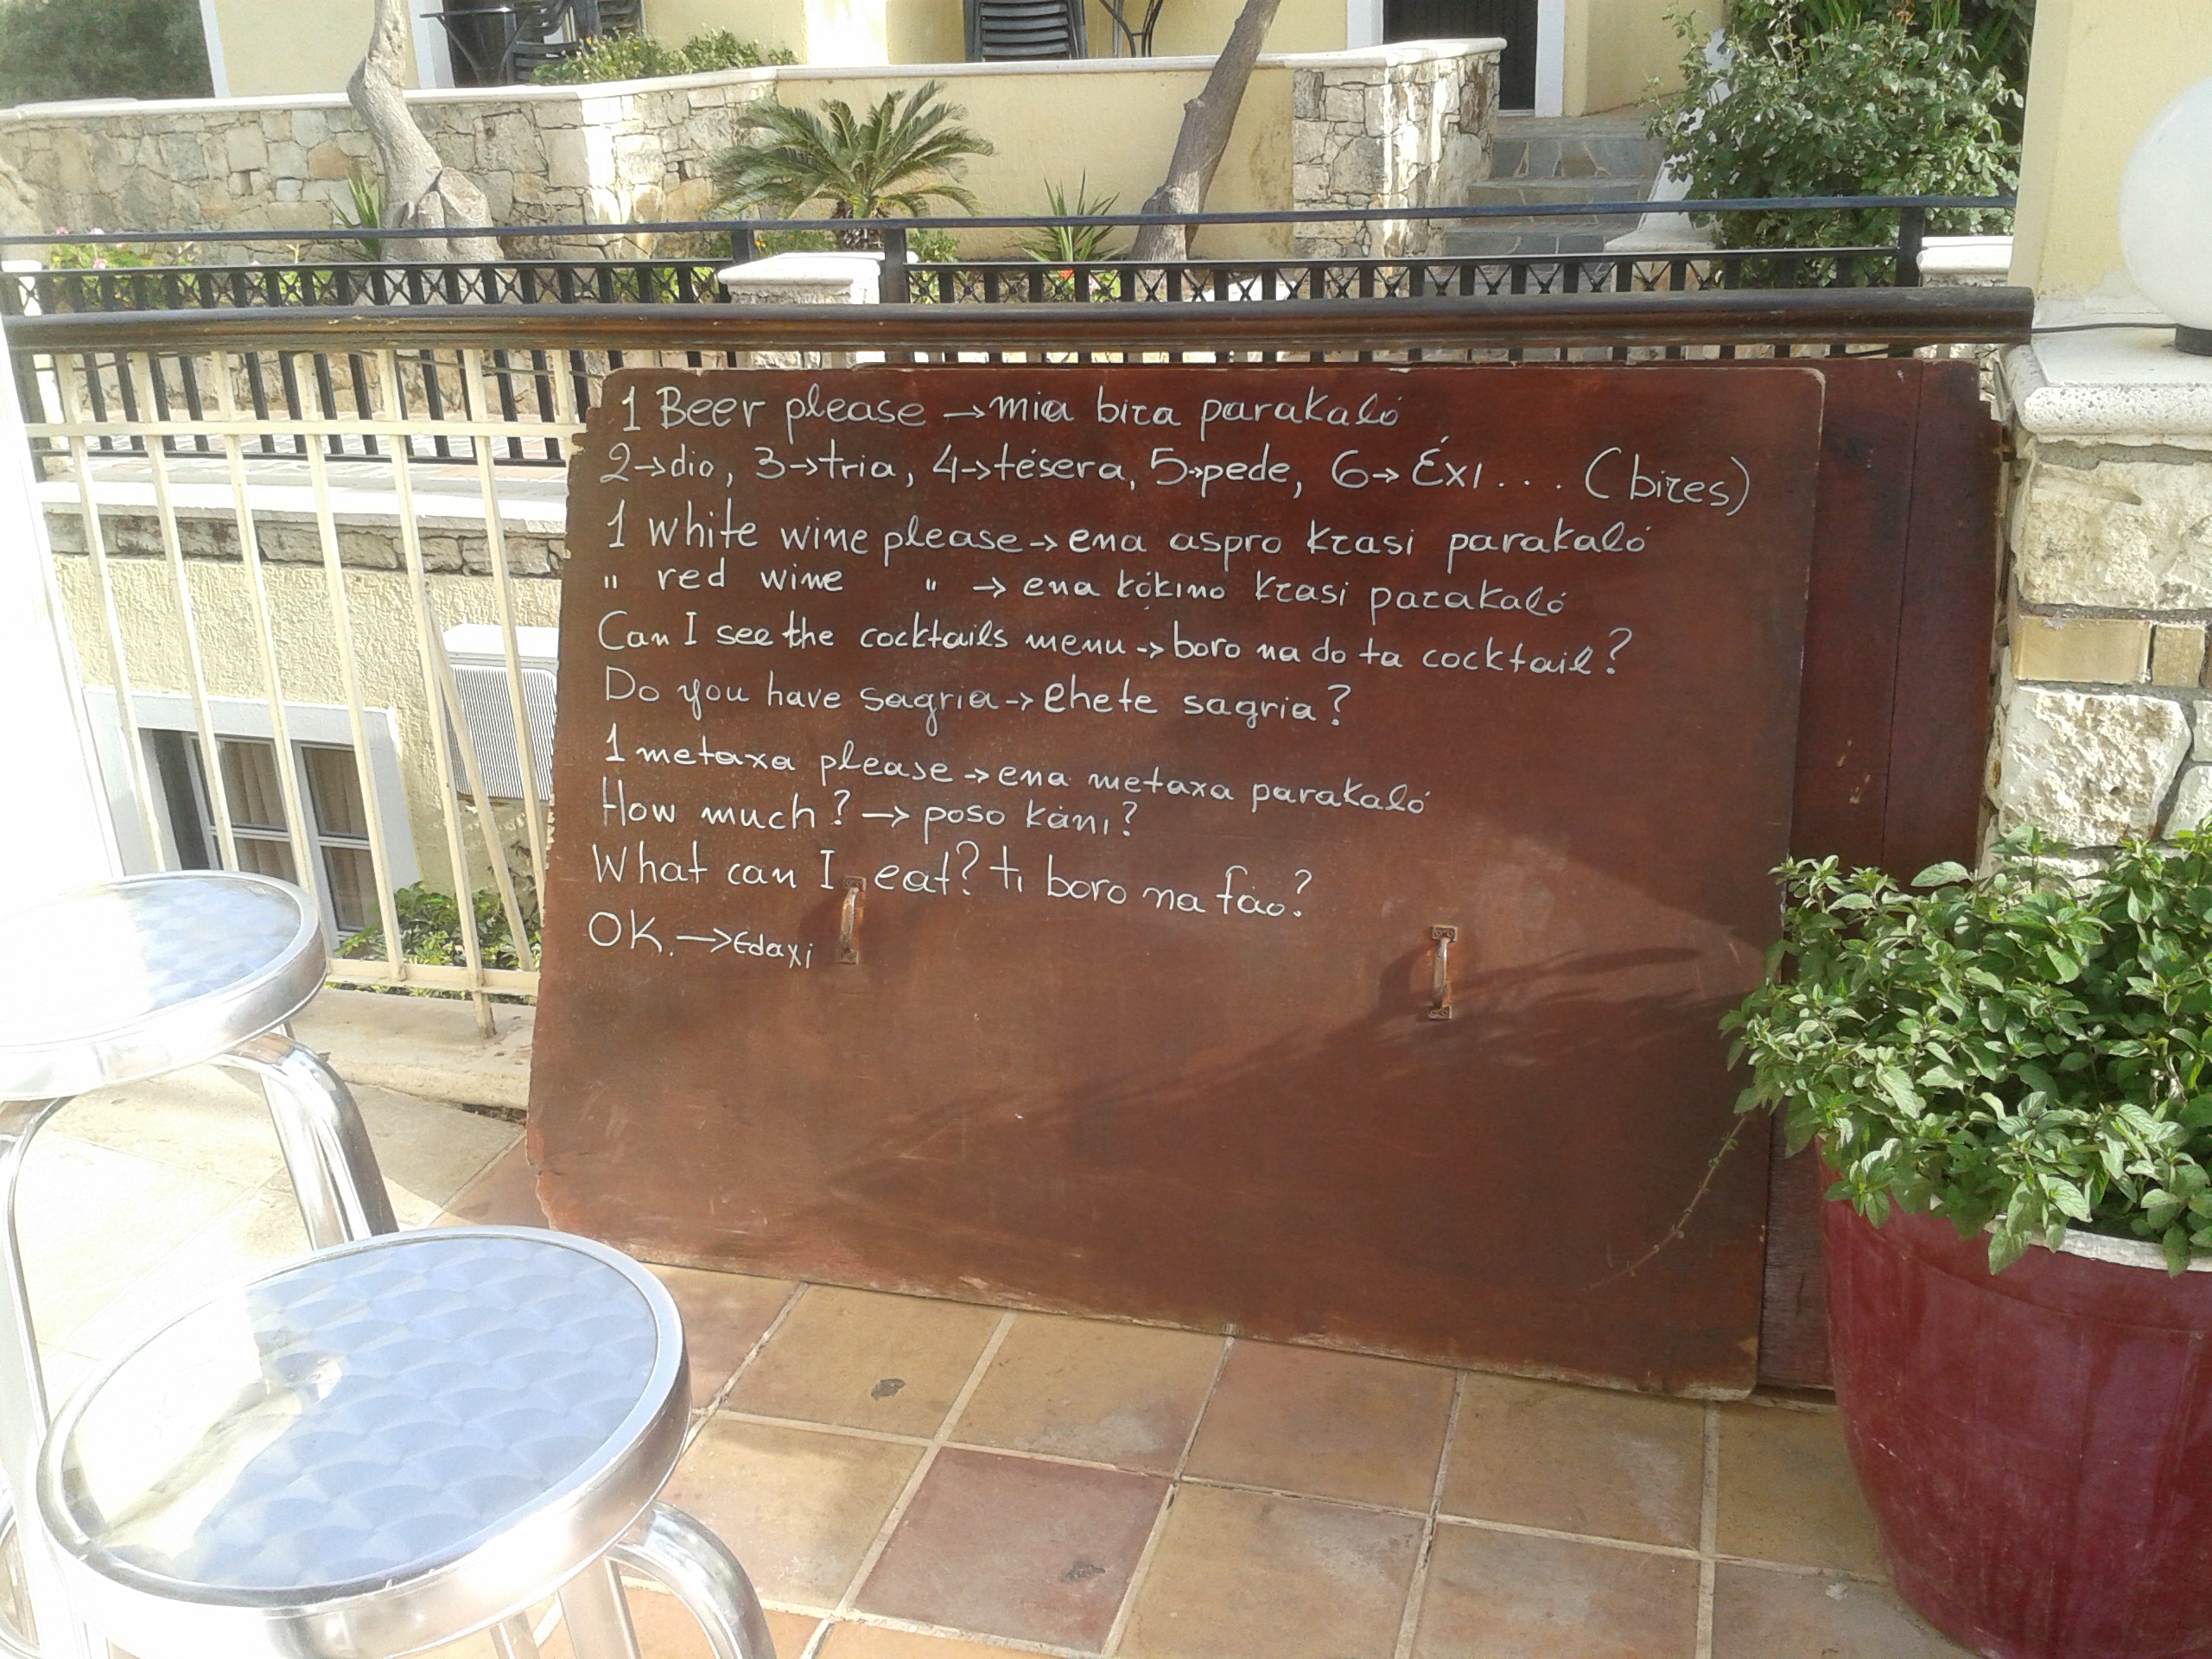 1 Beer please → mia bira parakaló
2→dio, 3→tria, 4→tésera, 5→pede, 6→ Éxi... (bires)
1 white wine please → ena aspro krasi parakaló
" red wine " → ena kókino krasi parakaló
Can I see the cocktails menu → boro na do ta cocktail?
Do you have sagria → ehete sagria?
1 metaxa please → ena metaxa parakaló
How much? → poso káni?
What can I eat? ti boro na fáo?
OK. → Edaxi